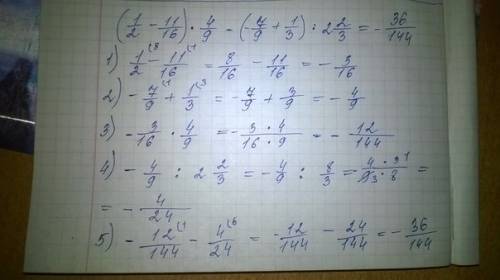 (1/2 - 11/16) · 4/9 - (-7/9 + 1/3) : 2 2/3 = - 36/144
1) 1/2 (8 - 11/16 (1 = 8/16 - 11/16 = - 3/16
2) - 7/9 (1 + 1/3 (3 = - 7/9 + 3/9 = - 4/9
3) - 3/16 · 4/9 = - 3·4/16·9 = - 12/144
4) - 4/9 : 2 2/3 = - 4/9 : 8/3 = - 4·3 1/9 3·8 =
= - 4/24
5) - 12/144 (1 - 4/24 (6 = - 12/144 - 24/144 = - 36/144